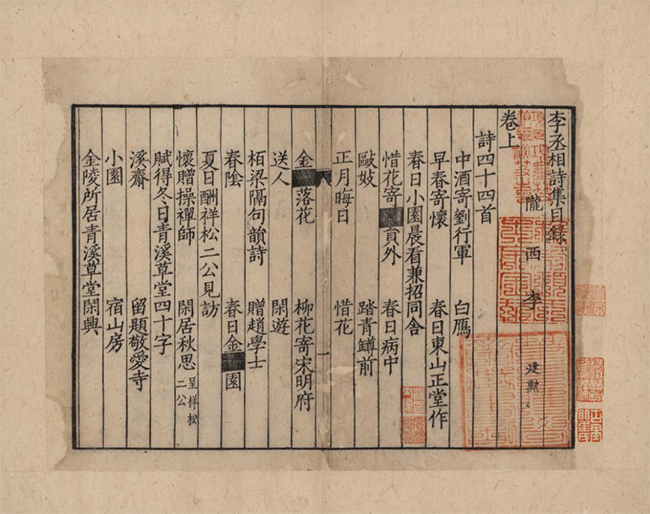 李丞相詩集目錄
隴西李建勲
卷上
詩四十四首
中酒寄劉行軍 白鴈
早春寄懷 春日東山正堂作
春日小園晨看兼招同舍
惜花寄 員外 春日病中
毆妓 踏青罇前
正月晦日 惜花
金 落花 柳花寄宋明府
送人 閑遊
栢梁隔句韻詩 贈趙學士
春陰 春日金 園
夏日酬祥松二公見訪
懷贈操禪師 閑居秋思呈祥松二公
賦得冬日青溪草堂四十字
溪齋 留題敬愛寺
小園 宿山房
金陵所居青溪草堂閑興